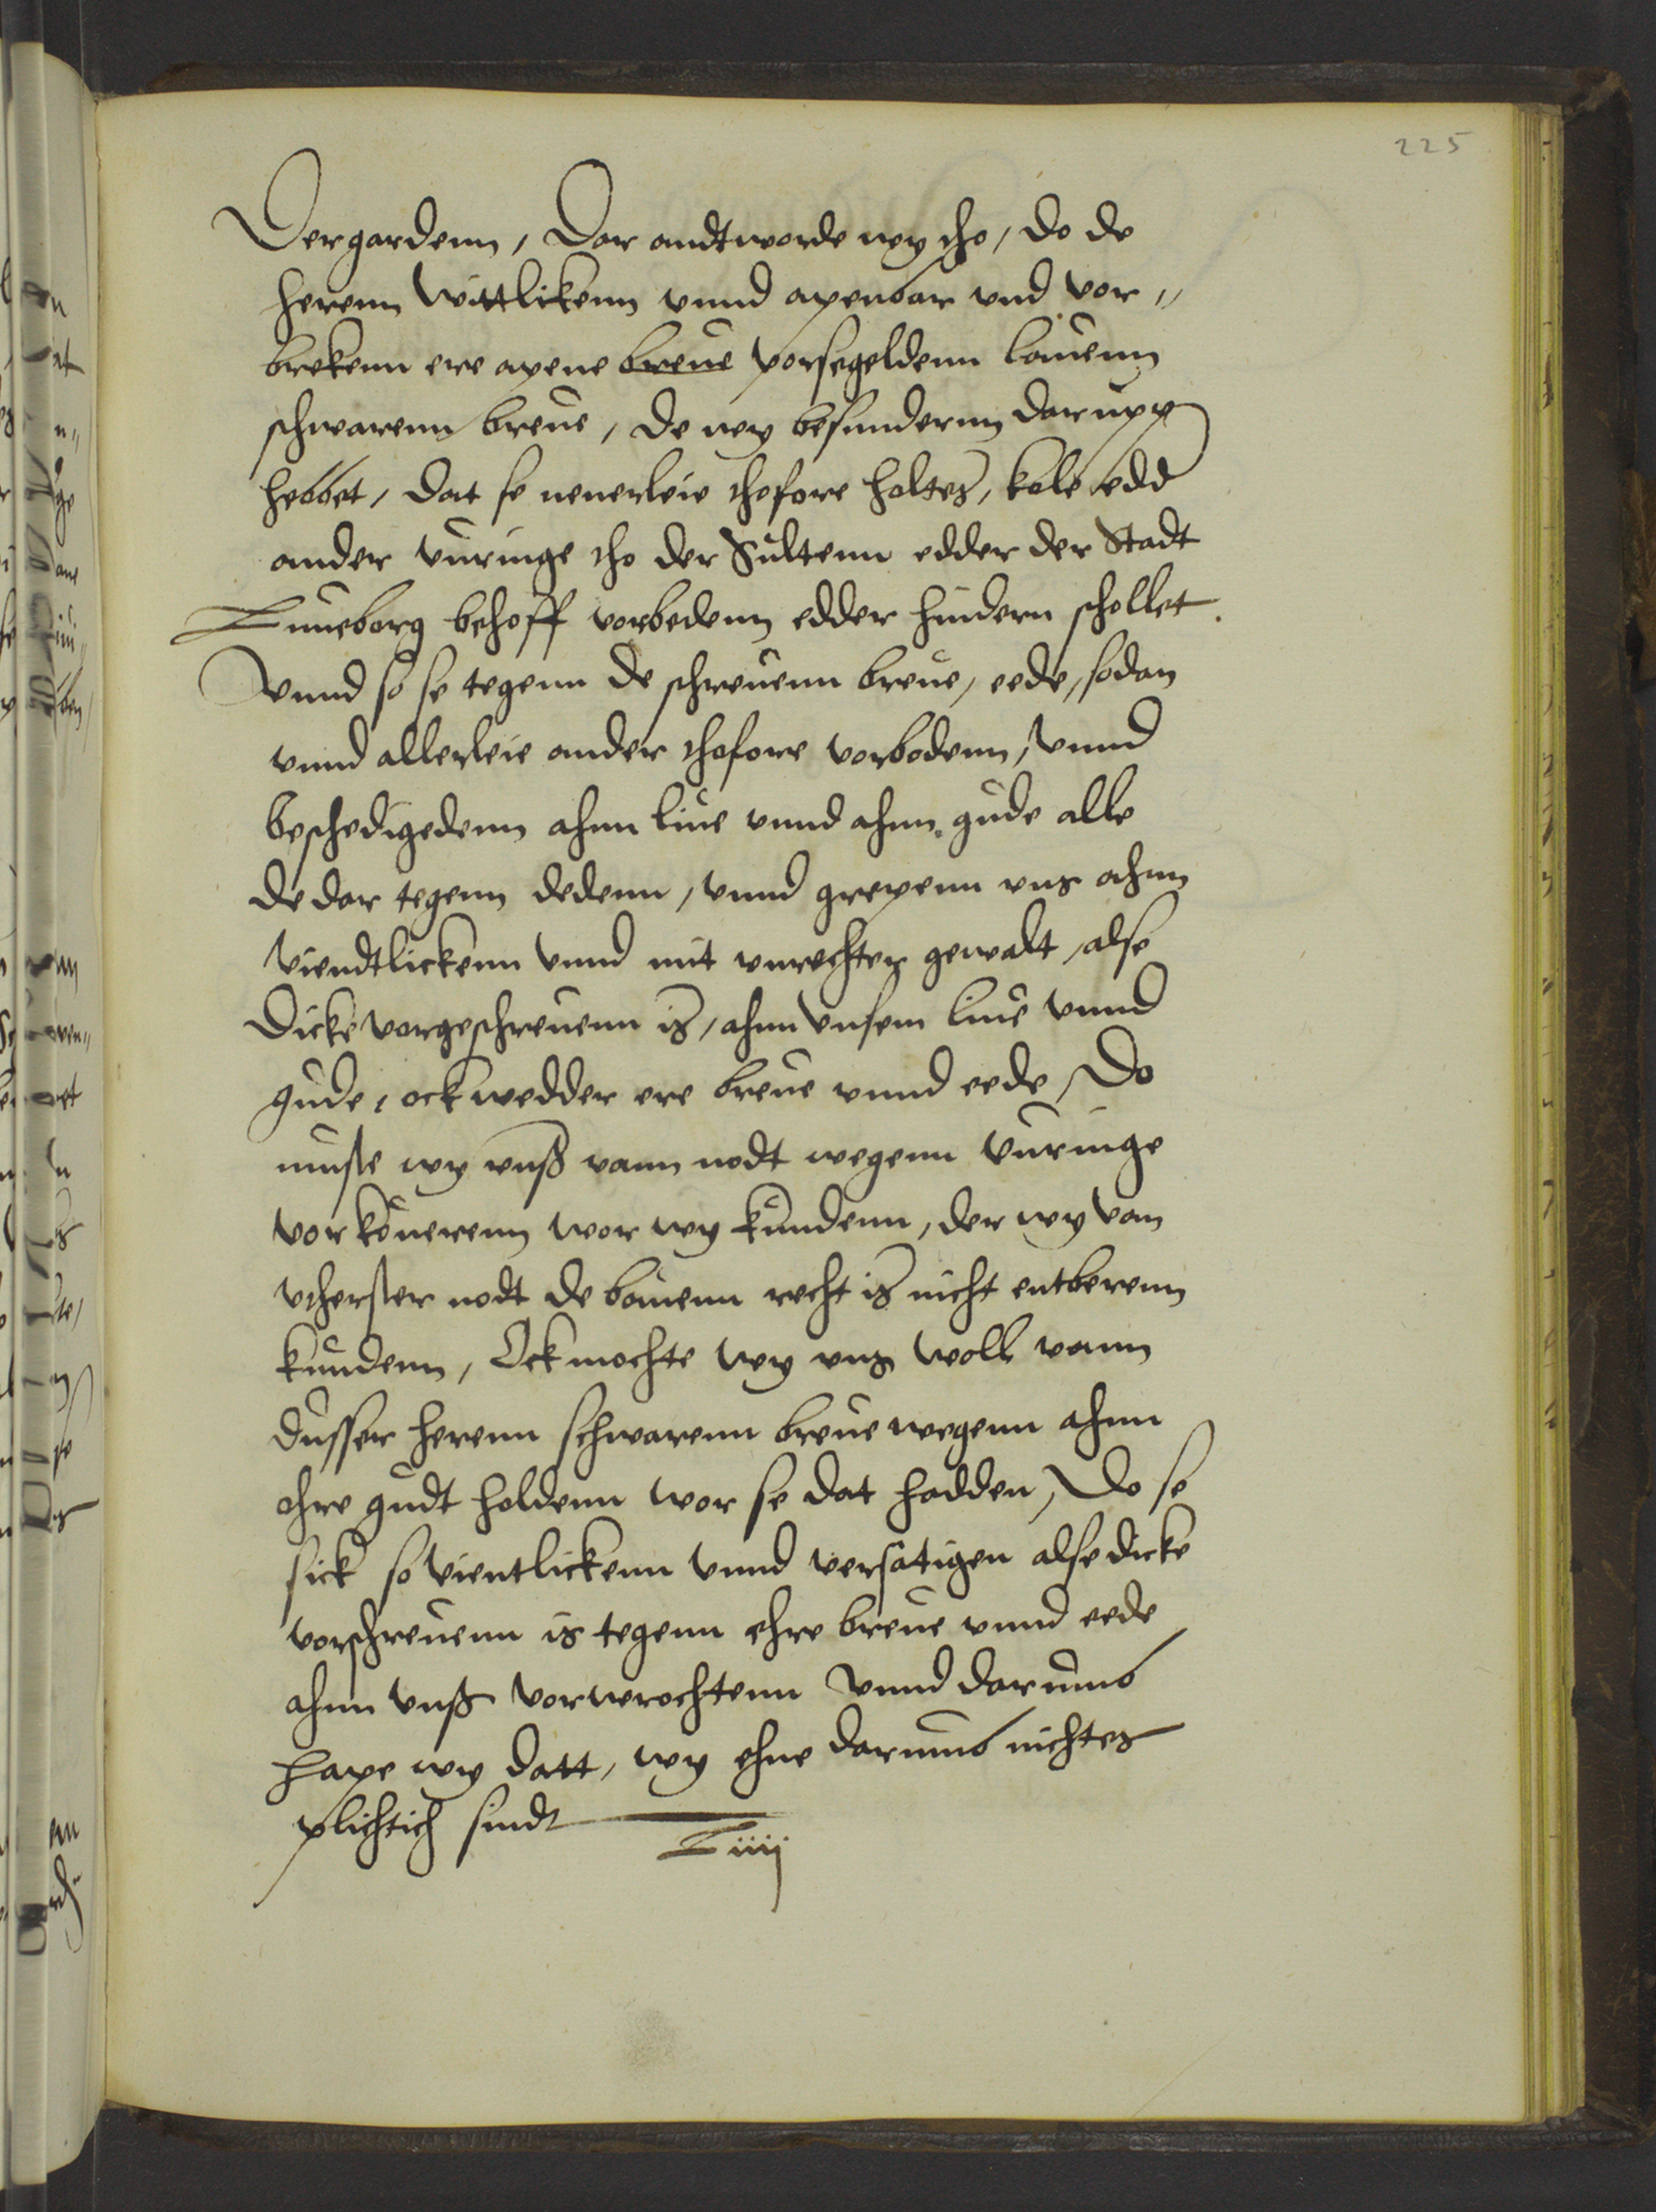 225
Vergardenn, Dar andtworde wy tho, do de
herenn wittlikenn vnnd apenbar vnd vor„
brekenn ere apene breue vorsegeldenn lauenn
schwarenn breue, de wy besundernn darupp
hebbet, dat se nenerleie thofore holtes, kole edd
ander vuringe tho der Sultenn edder der Stadt
Luneborg behoff vorbedenn edder hindern schollet.
Vnnd so se tegenn de schreuenn breue, eede, sodan
vnnd allerleie ander thofore vorbodenn, vnnd
beschedigedenn ahnn liue vnnd ahnn gude alle
de dar tegenn dedenn, vnnd grepenn vns ahnn
viendtlickenn vnnd mit vnrechter gewalt, alse
dicke vorgeschreuenn is, ahnn vnsem liue vnnd
gude, ock wedder ere breue vnnd eede, Do
muste wy vnß vann nodt wegenn vuringe
vorkouerenn wor wy kundenn, der wy van
vtherster nodt de bauenn recht is nicht entberenn
kundenn, Ock mochte wy vns woll vann
dusser herenn schwarenn breue wegenn ahnn
ohre gudt holdenn wor se dat hadden, Do se
sick so vientlickenn vnnd versatigen alse dicke
vorschreuenn is tegenn ehre breue vnnd eede
ahnn vnß vorwrochtenn vnnd darumb
hape wy datt, wy ehne darumb nichtes
plichtich sindt
L iiij